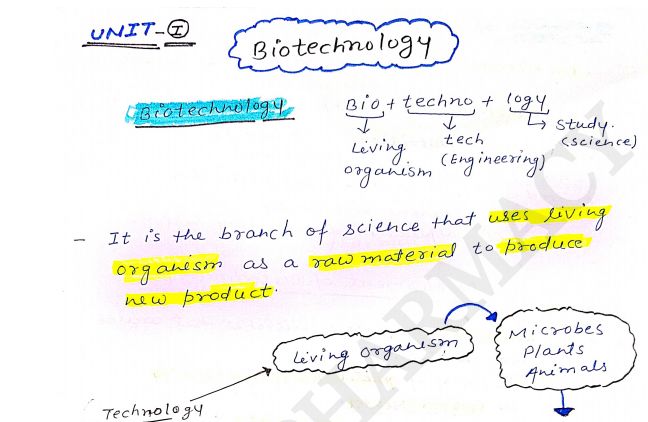 UNIT-I
Biotechnology
Biotechnology
Bio + techno + logy
Living organism
tech (Engineering)
Study. (science)
- It is the branch of science that uses living
organism as a raw material to produce
new product.
Living organism
Microbes
Plants
Animals
Technology
PHARMACY